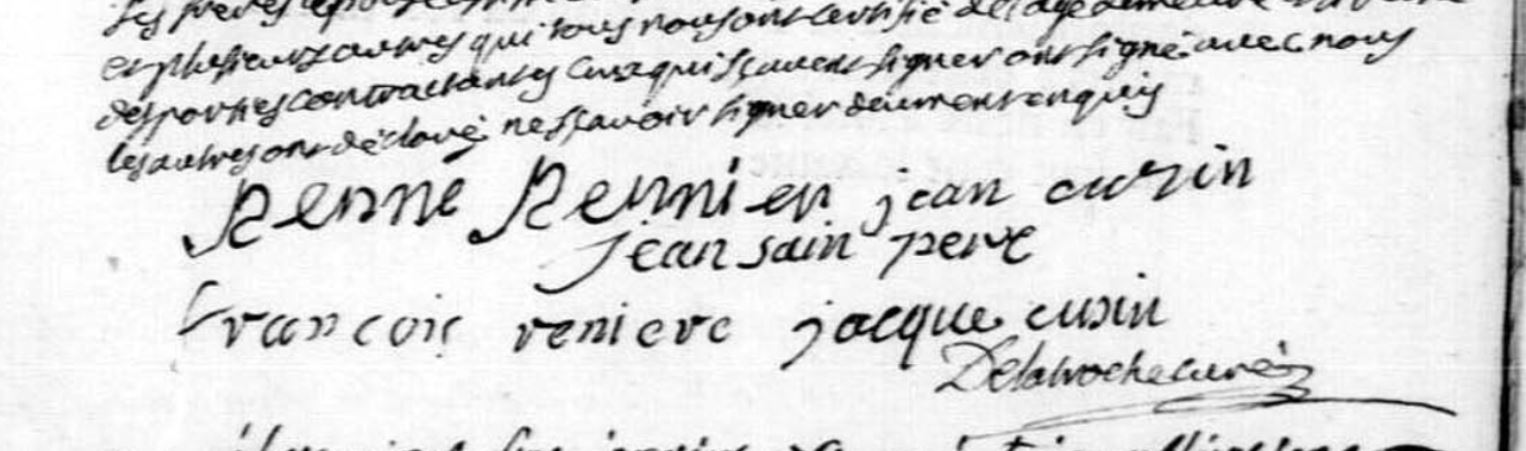 ses freres
et plusieurs autres qui tous nous ont certifié de l'age demeure
des parties contractantes ceux qui sçavent signer ont signé avec nous
les autres ont déclaré ne sçavoir signer deument enquis
Renne Rennier jean cusin
jean sain pere
francois reniere jacque cusin
Delaroche curé